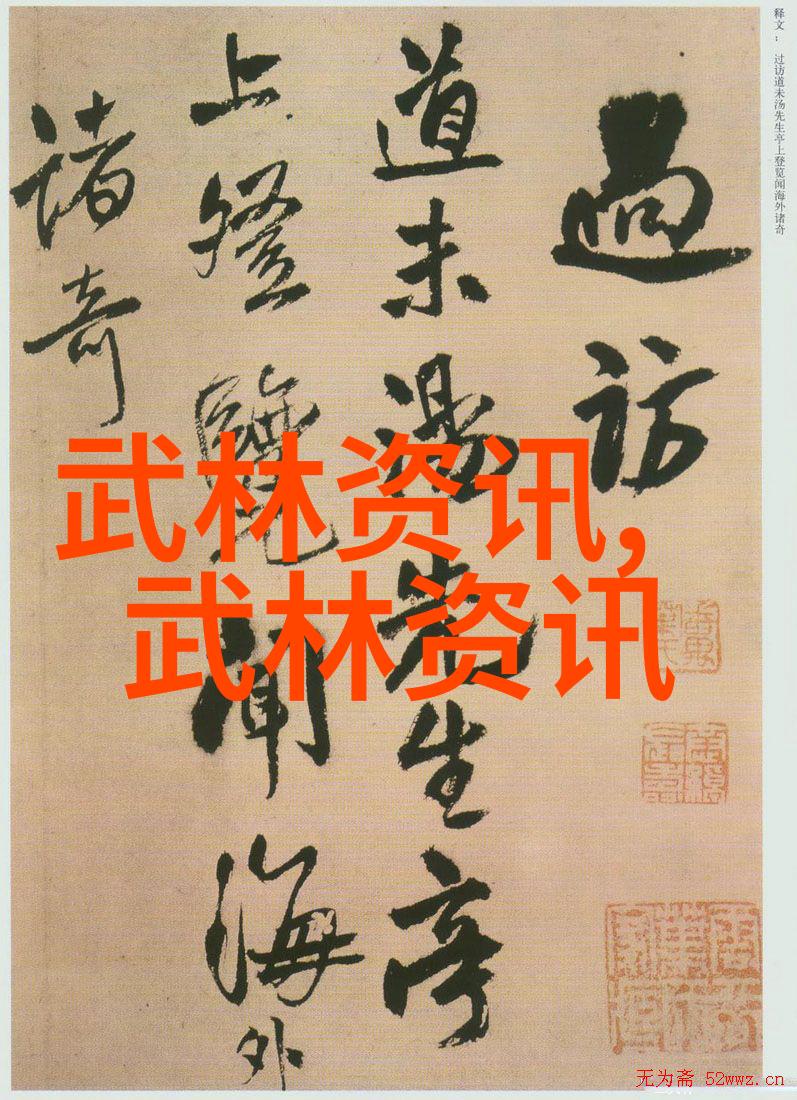 释文： 过访道未汤先生亭上登览闻海外诸奇
過訪
道未湯先生亭
上登覽聞海外
諸奇
武林资讯,
武林资讯
无为斋 52wwz.cn